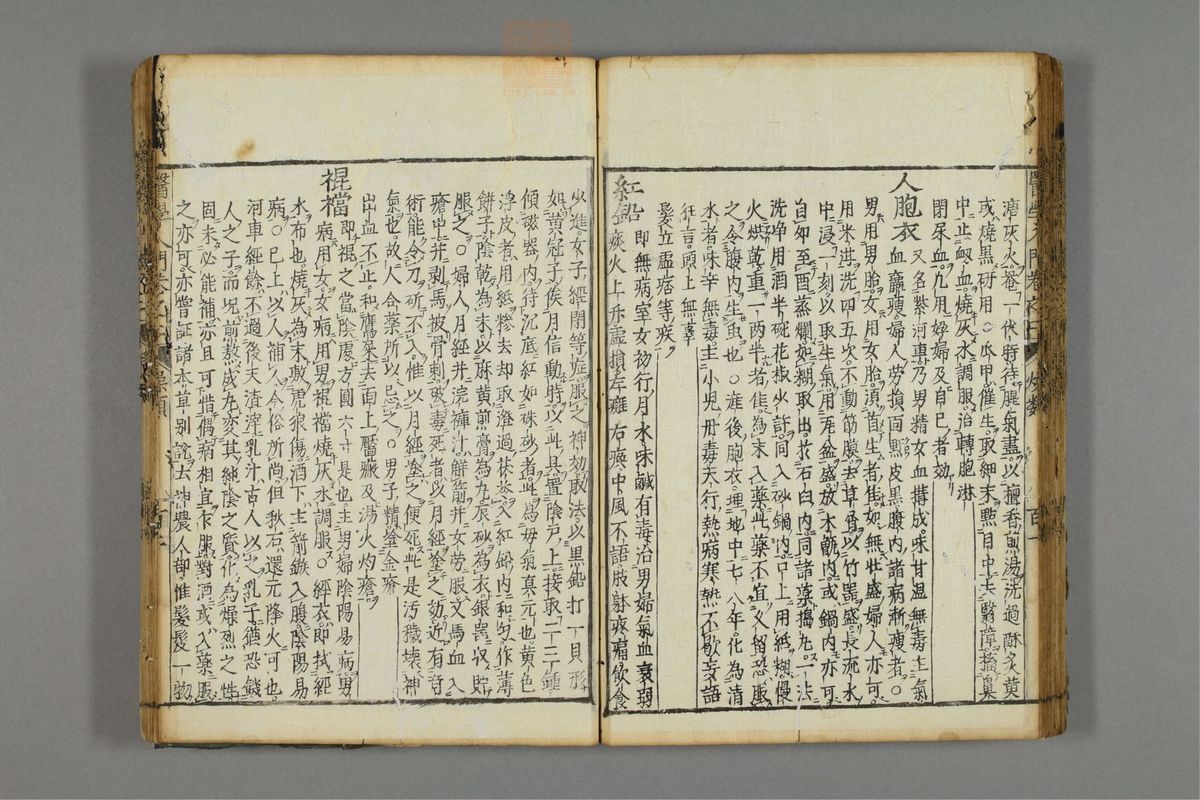 瀆灰火菴一伏時待腥氣盡以檀香煎湯洗過酥炙黃
或燒黑研用○爪甲催生取細末㸃目中去翳障摘鼻
中止衂血燒灰水調服治轉胞淋
閉尿血凡用妊婦及自已者効
人胞衣 又名紫河車乃男精女血搆成味甘溫無毒主氣
血羸瘦婦人勞損面䵟皮黑腹內諸病漸瘦者○
男用男胎女用女胎須首生者佳如無壯盛婦人亦可
用米泔洗四五次不動筋膜去草屑以竹器盛長流水
中浸一刻以取生氣用瓦盆盛放木甑內或鍋內亦可
自卯至酉蒸爛如糊取出于石臼內同諸藥搗丸一法
洗淨用酒半碗花椒少許同入砂鍋內口上用紙糊慢
火烘乾重一兩半者佳為末入藥此藥不宜久留恐服
之令腹內生虫也○產後胞衣埋地中七八年化為清
水者味辛無毒主小兒丹毒天行熱病寒熱不歇妄語
狂言頭上無辜
髮立虛痞等疾
紅鉛 即無病室女初行月水味鹹有毒治男婦氣血衰弱
痰火上升虛損左癱右瘓中風不語肢躰疼痛飲食
少進女子經閉等症服之神効取法以黑鉛打一具形
如黃冠子候月信動時以此具置陰戶上接取二三鍾
傾磁器內待沉底紅如硃砂者此為母氣真元也黃色
浮皮者用紙糝去却取澄過茯苓入紅鉛內和勻作薄
餅子陰乾為末以麻黃煎膏為丸辰砂為衣銀器收貯
服之○婦人月經并浣褌汁解箭并女勞服又馬血入
瘡中并剥馬被骨刺毒死者以月經塗之効近有奇
術能令刀斫不入惟以月經塗之便死此是污穢壞神
氣也故人合藥所以忌之○男子精塗金瘡
出血不止和鷹屎去面上黶瘢及湯火灼瘡
裩襠 即裩之當陰處方圓六寸是也主男婦陰陽易病男
病用女女病用男裩襠燒灰水調服○經衣即拭經
水布也燒灰為末敷虎狼傷酒下主箭鏃入腹陰陽易
病○已上以人補人今俗所尚但秋石還元降火可也
河車經餘不過後天渣滓乳汁古人以之乳子猶恐饑
人之子而况煎熬歲久変其純陰之質化為燥烈之性
固未必能補亦且可惜傷病相宜乍服對酒或入藥服
之亦可亦嘗証諸本草別說云神農人部惟髮髲一物